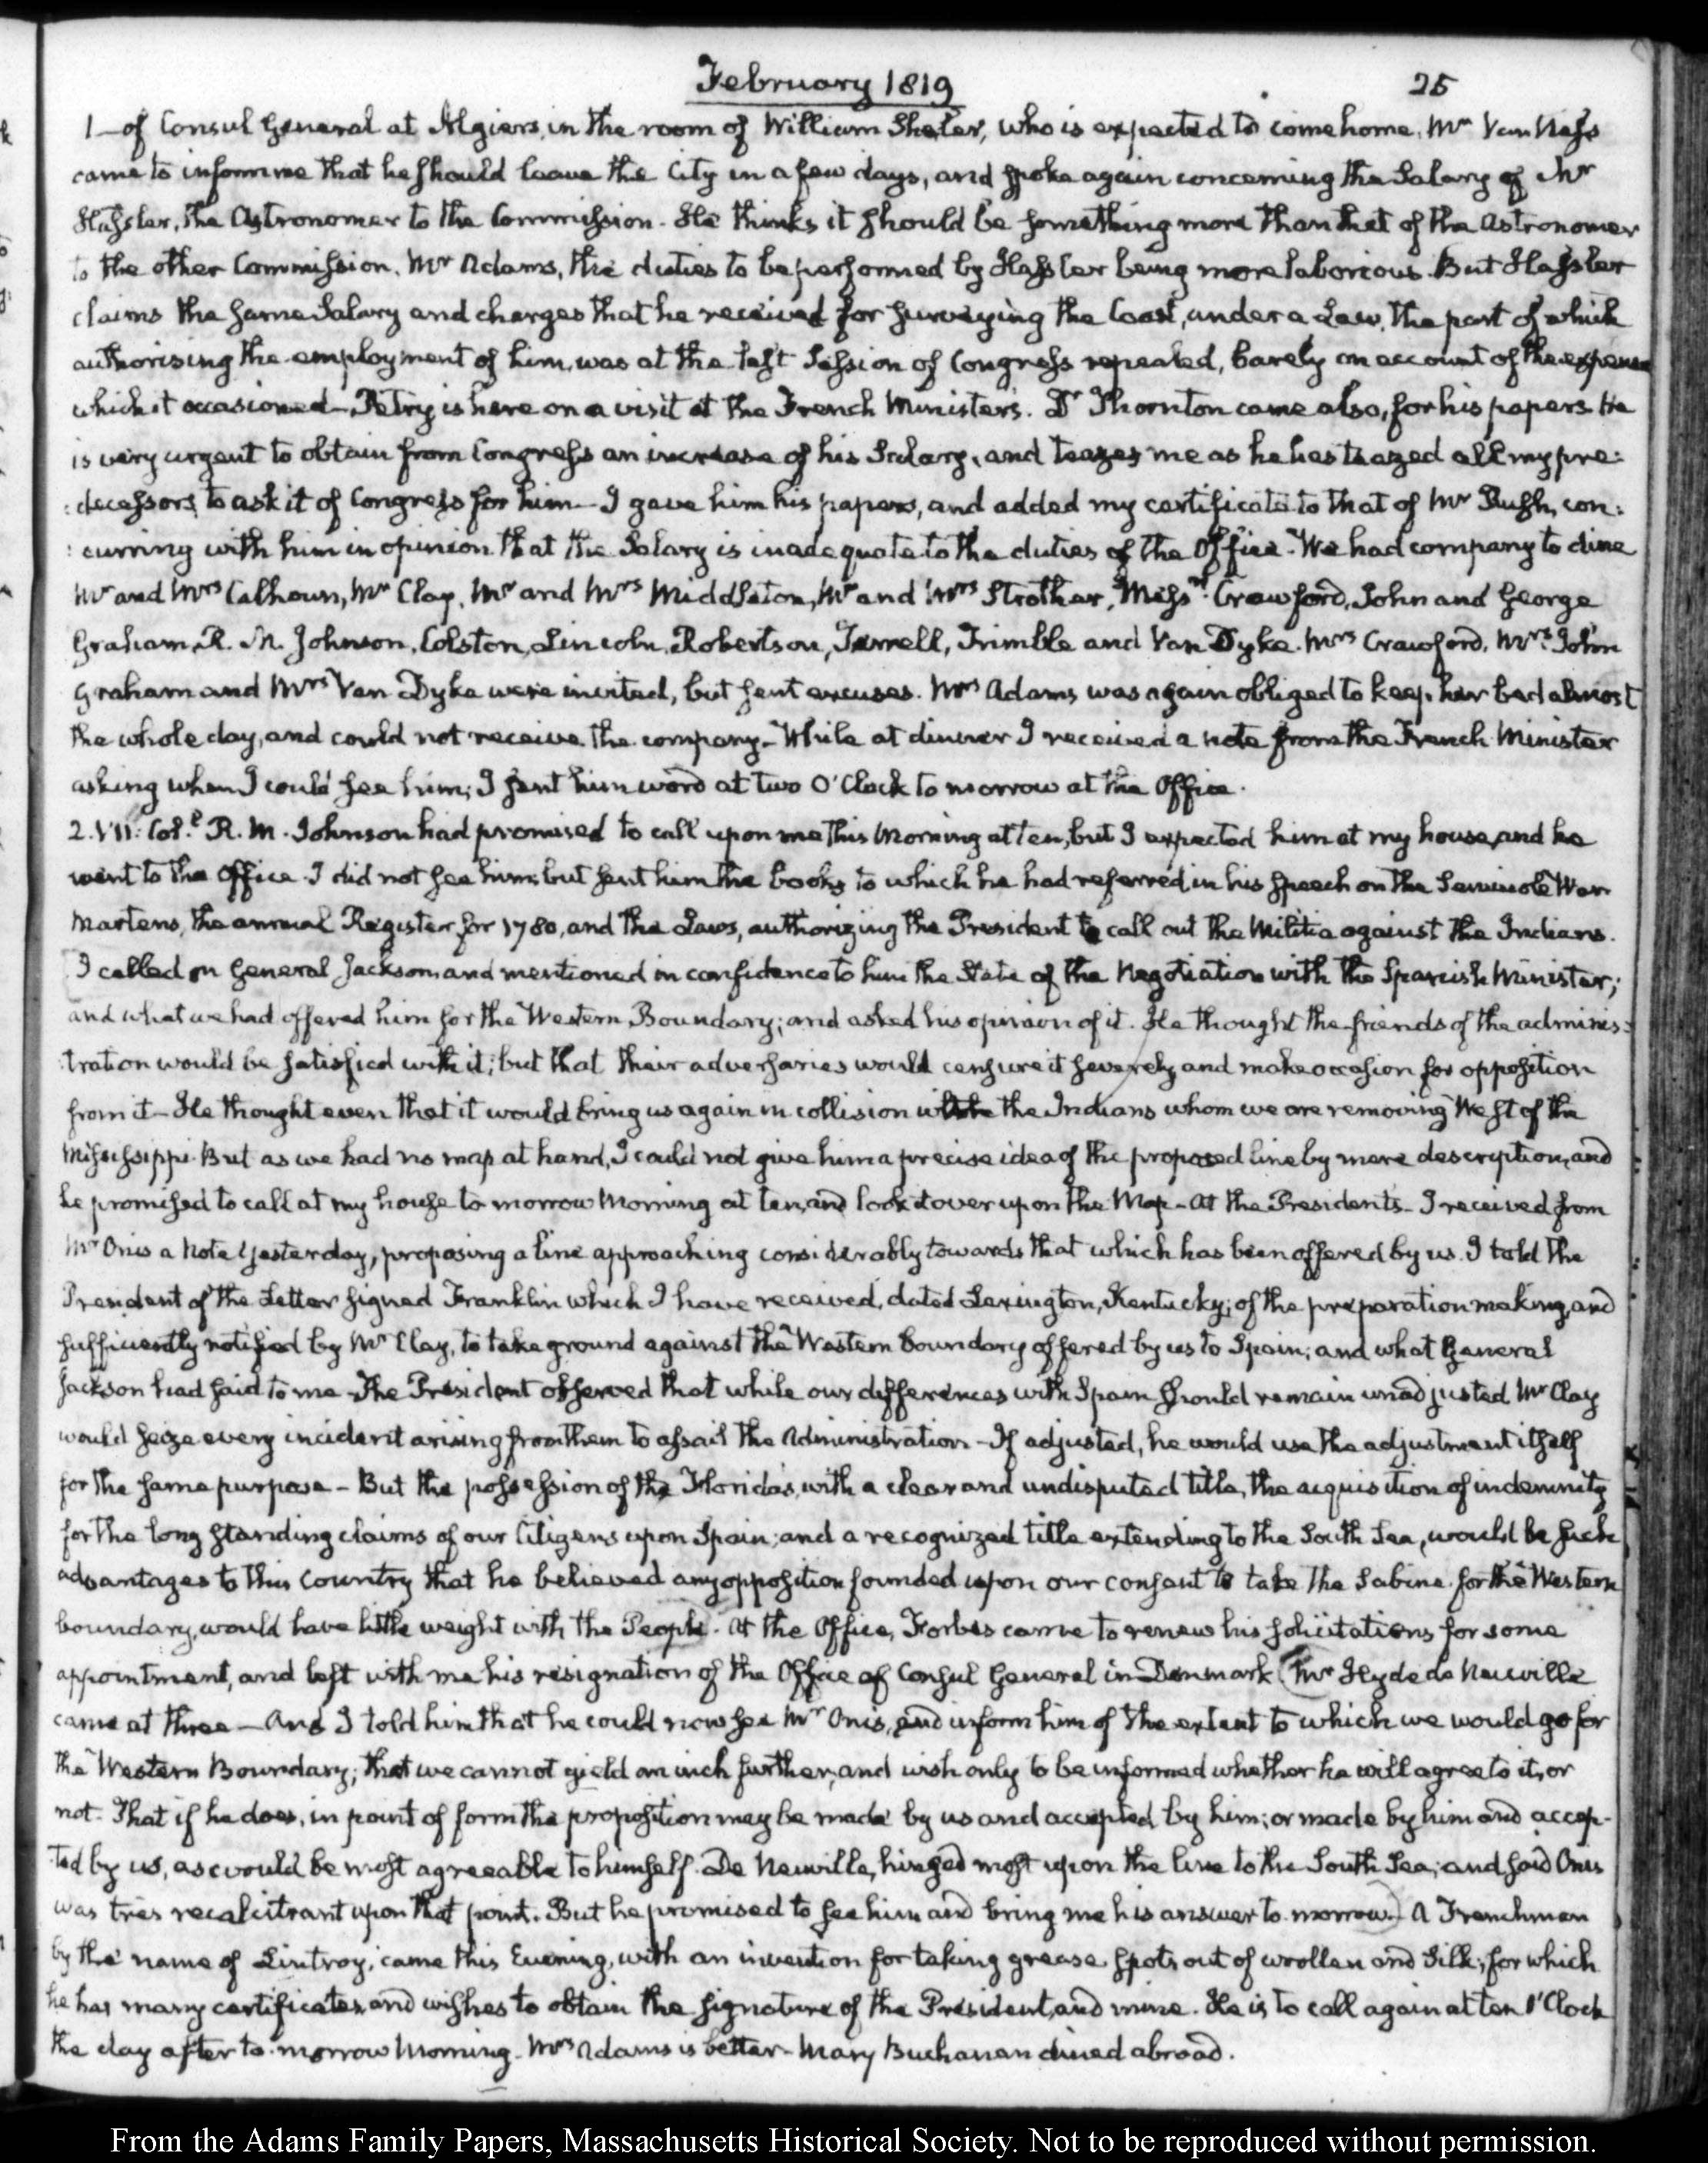 February 1819
25
1—of Consul General at Algiers, in the room of William Shaler, who is expected to come home. Mr Van Ness
came to inform me that he should leave the City in a few days, and spoke again concerning the Salary of Mr
Hassler, the Astronomer to the Commission. He thinks it should be something more than that of the Astronomer
to the other Commission, Mr Adams, the duties to be performed by Hassler being more laborious. But Hassler
claims the same Salary and charges that he received for surveying the Coast, under a Law, the part of which
authorising the employment of him, was at the last Session of Congress repealed, barely on account of the expense
which it occasioned—Petry is here on a visit at the French Minister's. Dr Thornton came also, for his papers. He
is very urgent to obtain from Congress an increase of his Salary, and teazes me as he has teazed all my pre:
:decessors, to ask it of Congress for him—I gave him his papers, and added my certificate to that of Mr Rush, con:
:curring with him in opinion that the Salary is inadequate to the duties of the Office. We had company to dine
Mr and Mrs Calhoun, Mr Clay, Mr and Mrs Middleton, Mr and Mrs Strother, Messrs Crawford, John and George
Graham, R. M. Johnson, Colston, Lincoln, Robertson, Terrell, Trimble and Van Dyke. Mrs Crawford, Mrs John
Graham and Mrs Van Dyke were invited, but sent excuses. Mrs Adams was again obliged to keep her bed almost
the whole day, and could not receive the company—While at dinner I received a note from the French Minister
asking when I could see him; I sent him word at two O'Clock to morrow at the Office.
2. VII: Coll R. M. Johnson had promised to call upon me this Morning at ten, but I expected him at my house, and he
went to the Office. I did not see him; but sent him the books to which he had referred in his speech on the Seminole War
Martens, the annual Register for 1780, and the Laws, authorizing the President to call out the Militia against the Indians.
I called on General Jackson, and mentioned in confidence to him the State of the Negotiation with the Spanish Minister;
and what we had offered him for the Western Boundary; and asked his opinion of it. He thought the friends of the adminis:
:tration would be satisfied with it; but that their adversaries would censure it severely, and make occasion for opposition
from it—He thought even that it would bring us again in collision with the Indians whom we are removing West of the
Mississippi. But as we had no map at hand, I could not give him a precise idea of the proposed line by mere description, and
he promised to call at my house to morrow Morning at ten, and look it over upon the Map—At the President's—I received from
Mr Onis a Note yesterday, proposing a line approaching considerably towards that which has been offered by us. I told the
President of the Letter signed Franklin which I have received, dated Lexington, Kentucky; of the preparation making, and
sufficiently notified by Mr Clay, to take ground against the Western boundary offered by us to Spain; and what General
Jackson had said to me—The President observed that while our differences with Spain should remain unadjusted Mr Clay
would seize every incident arising from them to assail the Administration—If adjusted, he would use the adjustment itself
for the same purpose—But the possession of the Florida's, with a clear and undisputed title, the acquisition of indemnity
for the long standing claims of our Citizens upon Spain; and a recognized title extending to the South Sea, would be such
advantages to this Country that he believed any opposition founded upon our consent to take the Sabine for the Western
boundary, would have little weight with the People. At the Office, Forbes came to renew his solicitations for some
appointment, and left with me his resignation of the Office of Consul General in Denmark (Mr Hyde de Neuville
came at three—And I told him that he could now see Mr Onis, and inform him of the extent to which we would go for
the Western Boundary; that we cannot yield an inch further, and wish only to be informed whether he will agree to it, or
not. That if he does, in point of form the proposition may be made by us and accepted by him; or made by him and accep-
ted by us, as would be most agreeable to himself. De Neuville, hinged most upon the line to the South Sea; and said Onis
was très recalcitrant upon that point. But he promised to see him and bring me his answer to morrow.) A Frenchman
by the name of Lintroy, came this Evening, with an invention for taking grease spots out of woollen and Silk; for which
he has many certificates, and wishes to obtain the signature of the President, and mine. He is to call again at ten O'Clock
the day after to-morrow Morning. Mrs Adams is better—Mary Buchanan dined abroad.
From the Adams Family Papers, Massachusetts Historical Society. Not to be reproduced without permission.